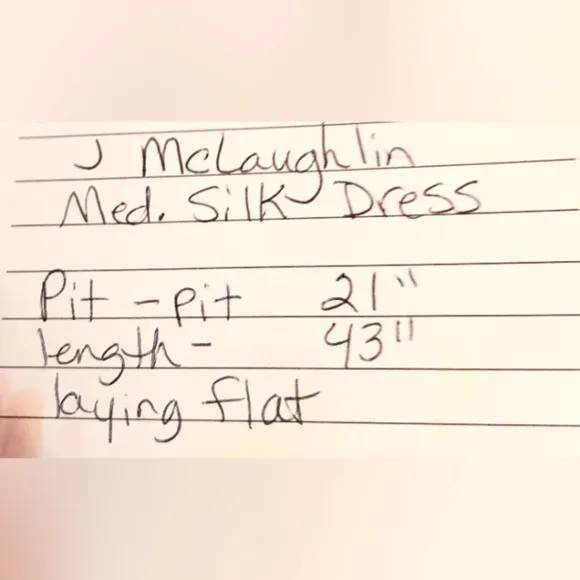 J McLaughlin
Med. Silk Dress
Pit - pit 21"
length - 43"
laying flat